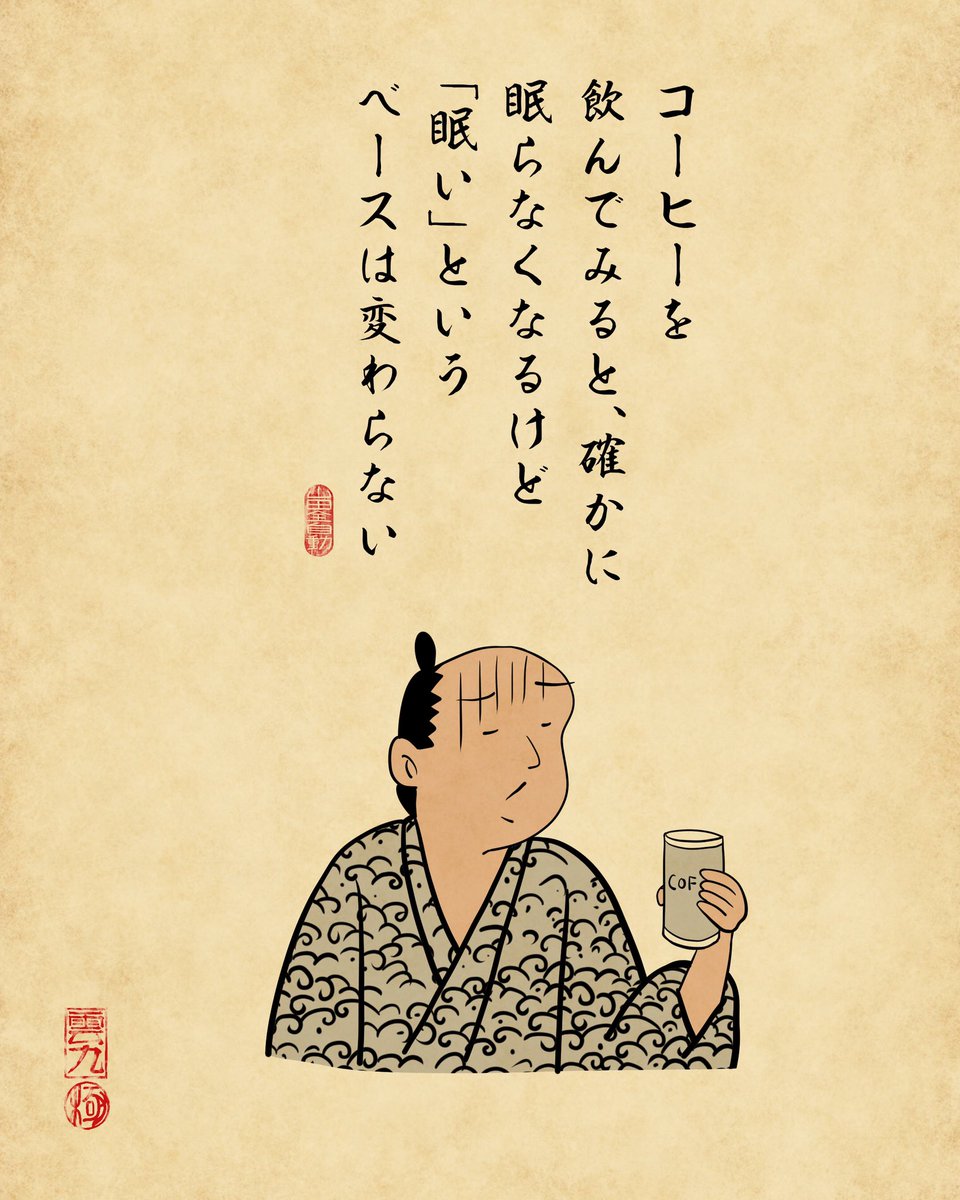 コーヒーを
飲んでみると、確かに
眠らなくなるけど
「眠い」という
ベースは変わらない
COF